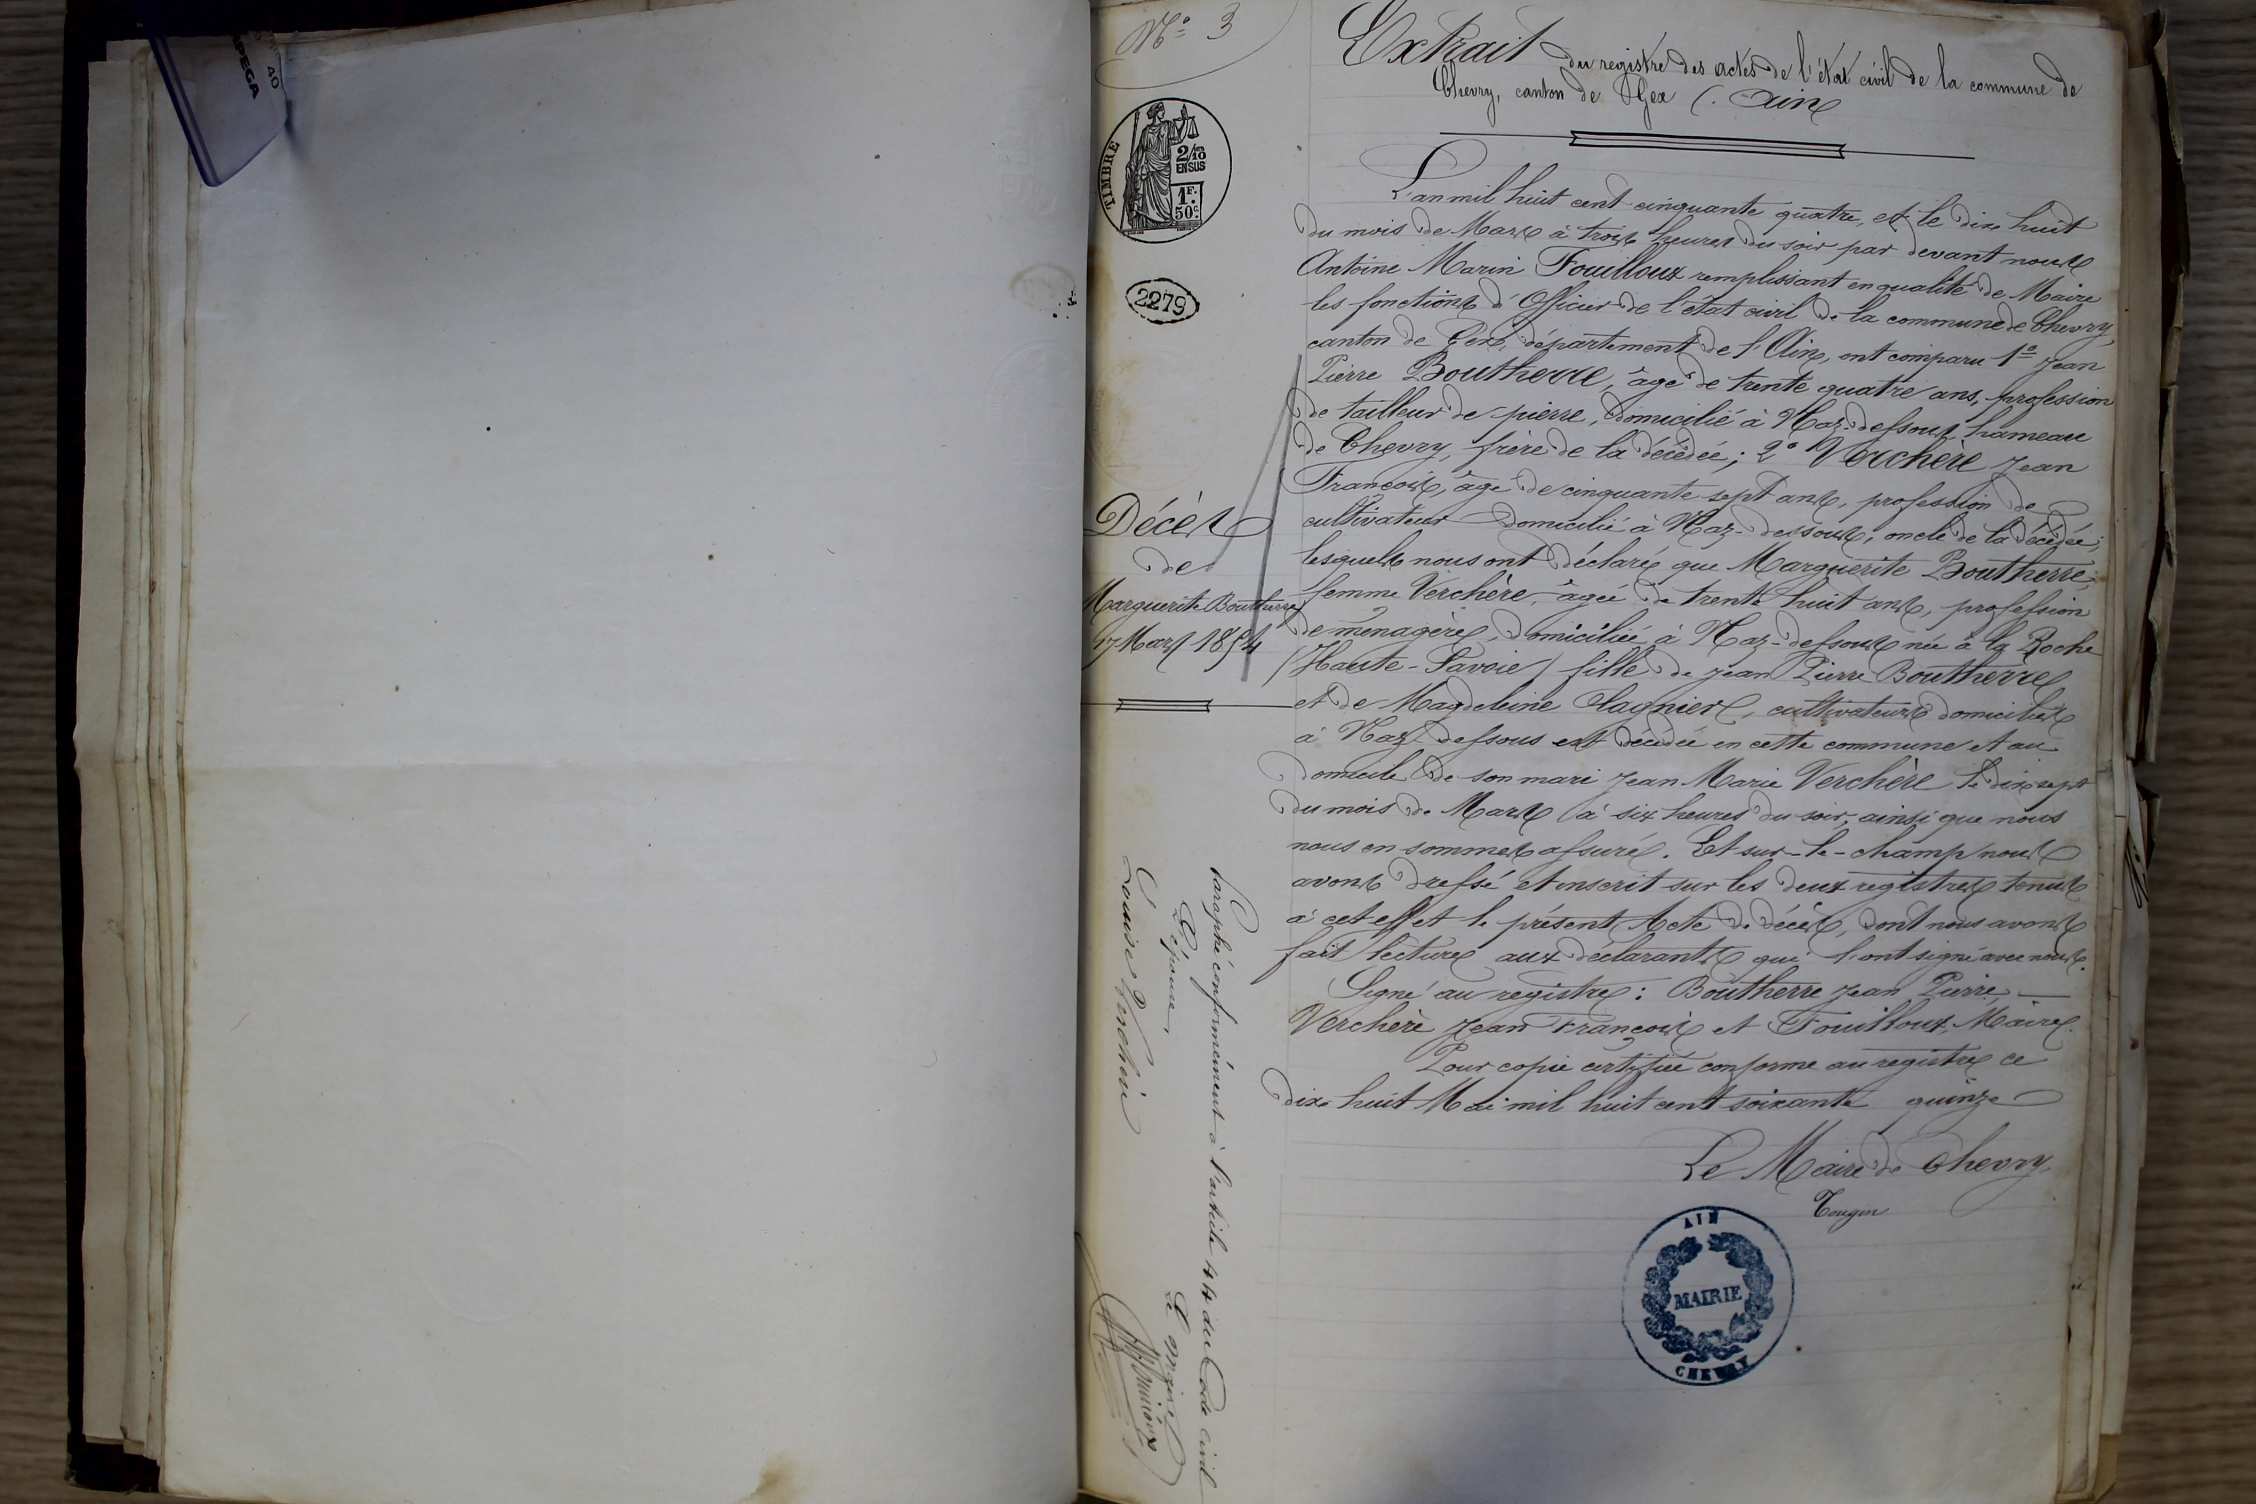 40
SPEGA
N° 3
TIMBRE
2/10
EN SUS
1F.
50c.
2279
Extrait du registre des actes de l'état civil de la commune de
Chevry, canton de Gex (. Ain
Décès
de
Marguerite Boutherre
17 Mars 1854
L'an mil huit cent cinquante quatre, et le dix huit
du mois de Mars à trois heures du soir par devant nous
Antoine Marin Fouilloux remplissant en qualité de Maire
les fonctions d'Officier de l'état civil de la commune de Chevry,
canton de Gex, département de l'Ain, ont comparu 1° Jean
Pierre Boutherre, âgé de trente quatre ans, profession
de tailleur de pierre, domicilié à Naz-dessous hameau
de Chevry, frère de la décédée; 2° Verchère Jean
François, âgé de cinquante sept ans, profession de
cultivateur domicilié à Naz-dessous, oncle de la décédée;
lesquels nous ont déclaré que Marguerite Boutherre,
femme Verchère, âgée de trente huit ans, profession
de ménagère, domiciliée à Naz-dessous née à la Roche
(Haute-Savoie) fille de Jean Pierre Boutherre
et de Magdeleine, cultivateurs domiciliés
à Naz-dessous est décédée en cette commune et au
domicile de son mari Jean Marie Verchère le dix sept
du mois de Mars à six heures du soir, ainsi que nous
nous en sommes assuré. Et sur-le-champ nous
avons dressé et inscrit sur les deux registres tenus
à cet effet le présent Acte de décès, dont nous avons
fait lecture aux déclarants qui l'ont signé avec nous.
Signé au registre: Boutherre Jean Pierre,
Verchère Jean François et Fouilloux, Maire.
Pour copie certifiée conforme au registre ce
dix huit Mai mil huit cent soixante quinze
Le Maire de Chevry,
Tougin
AIN
MAIRIE
CHEVRY
Paraphé conformément à l'article 44 du Code civil
L'épouse, Le Maire
Louise Verchère